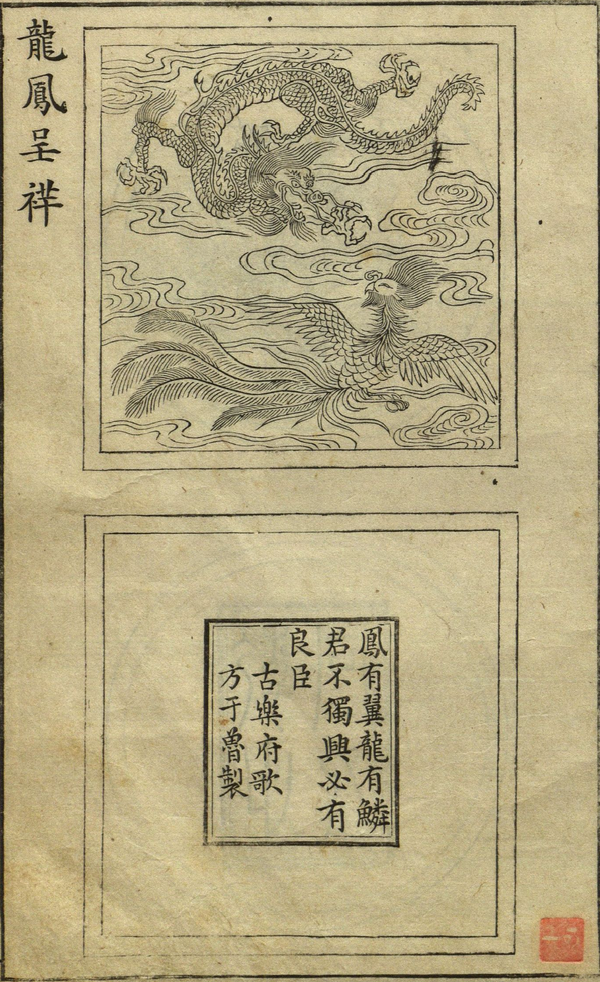 龍鳳呈祥
鳳有翼龍有鱗
君不獨興必有
良臣
古樂府歌
方于魯製